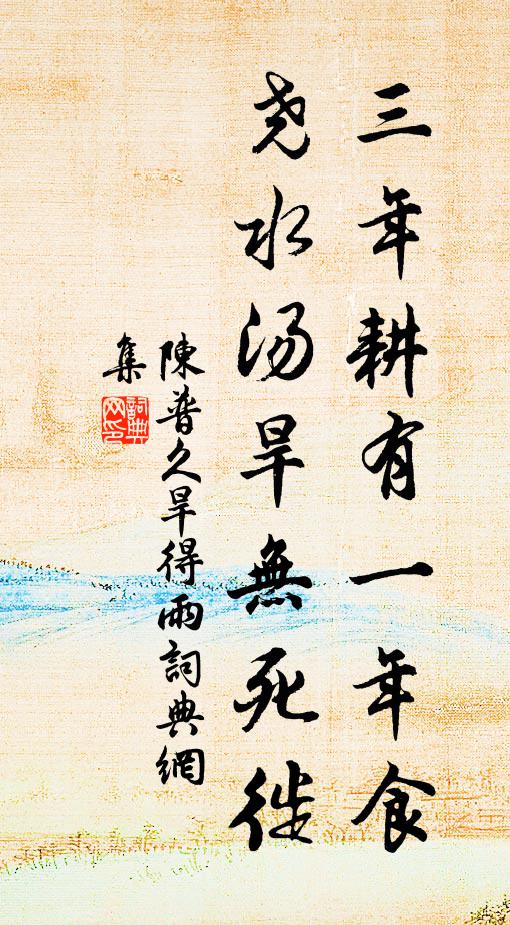 三年耕有一年食
尧水汤旱無死徙
陳普久旱得雨詞典網
集
詞典
网印